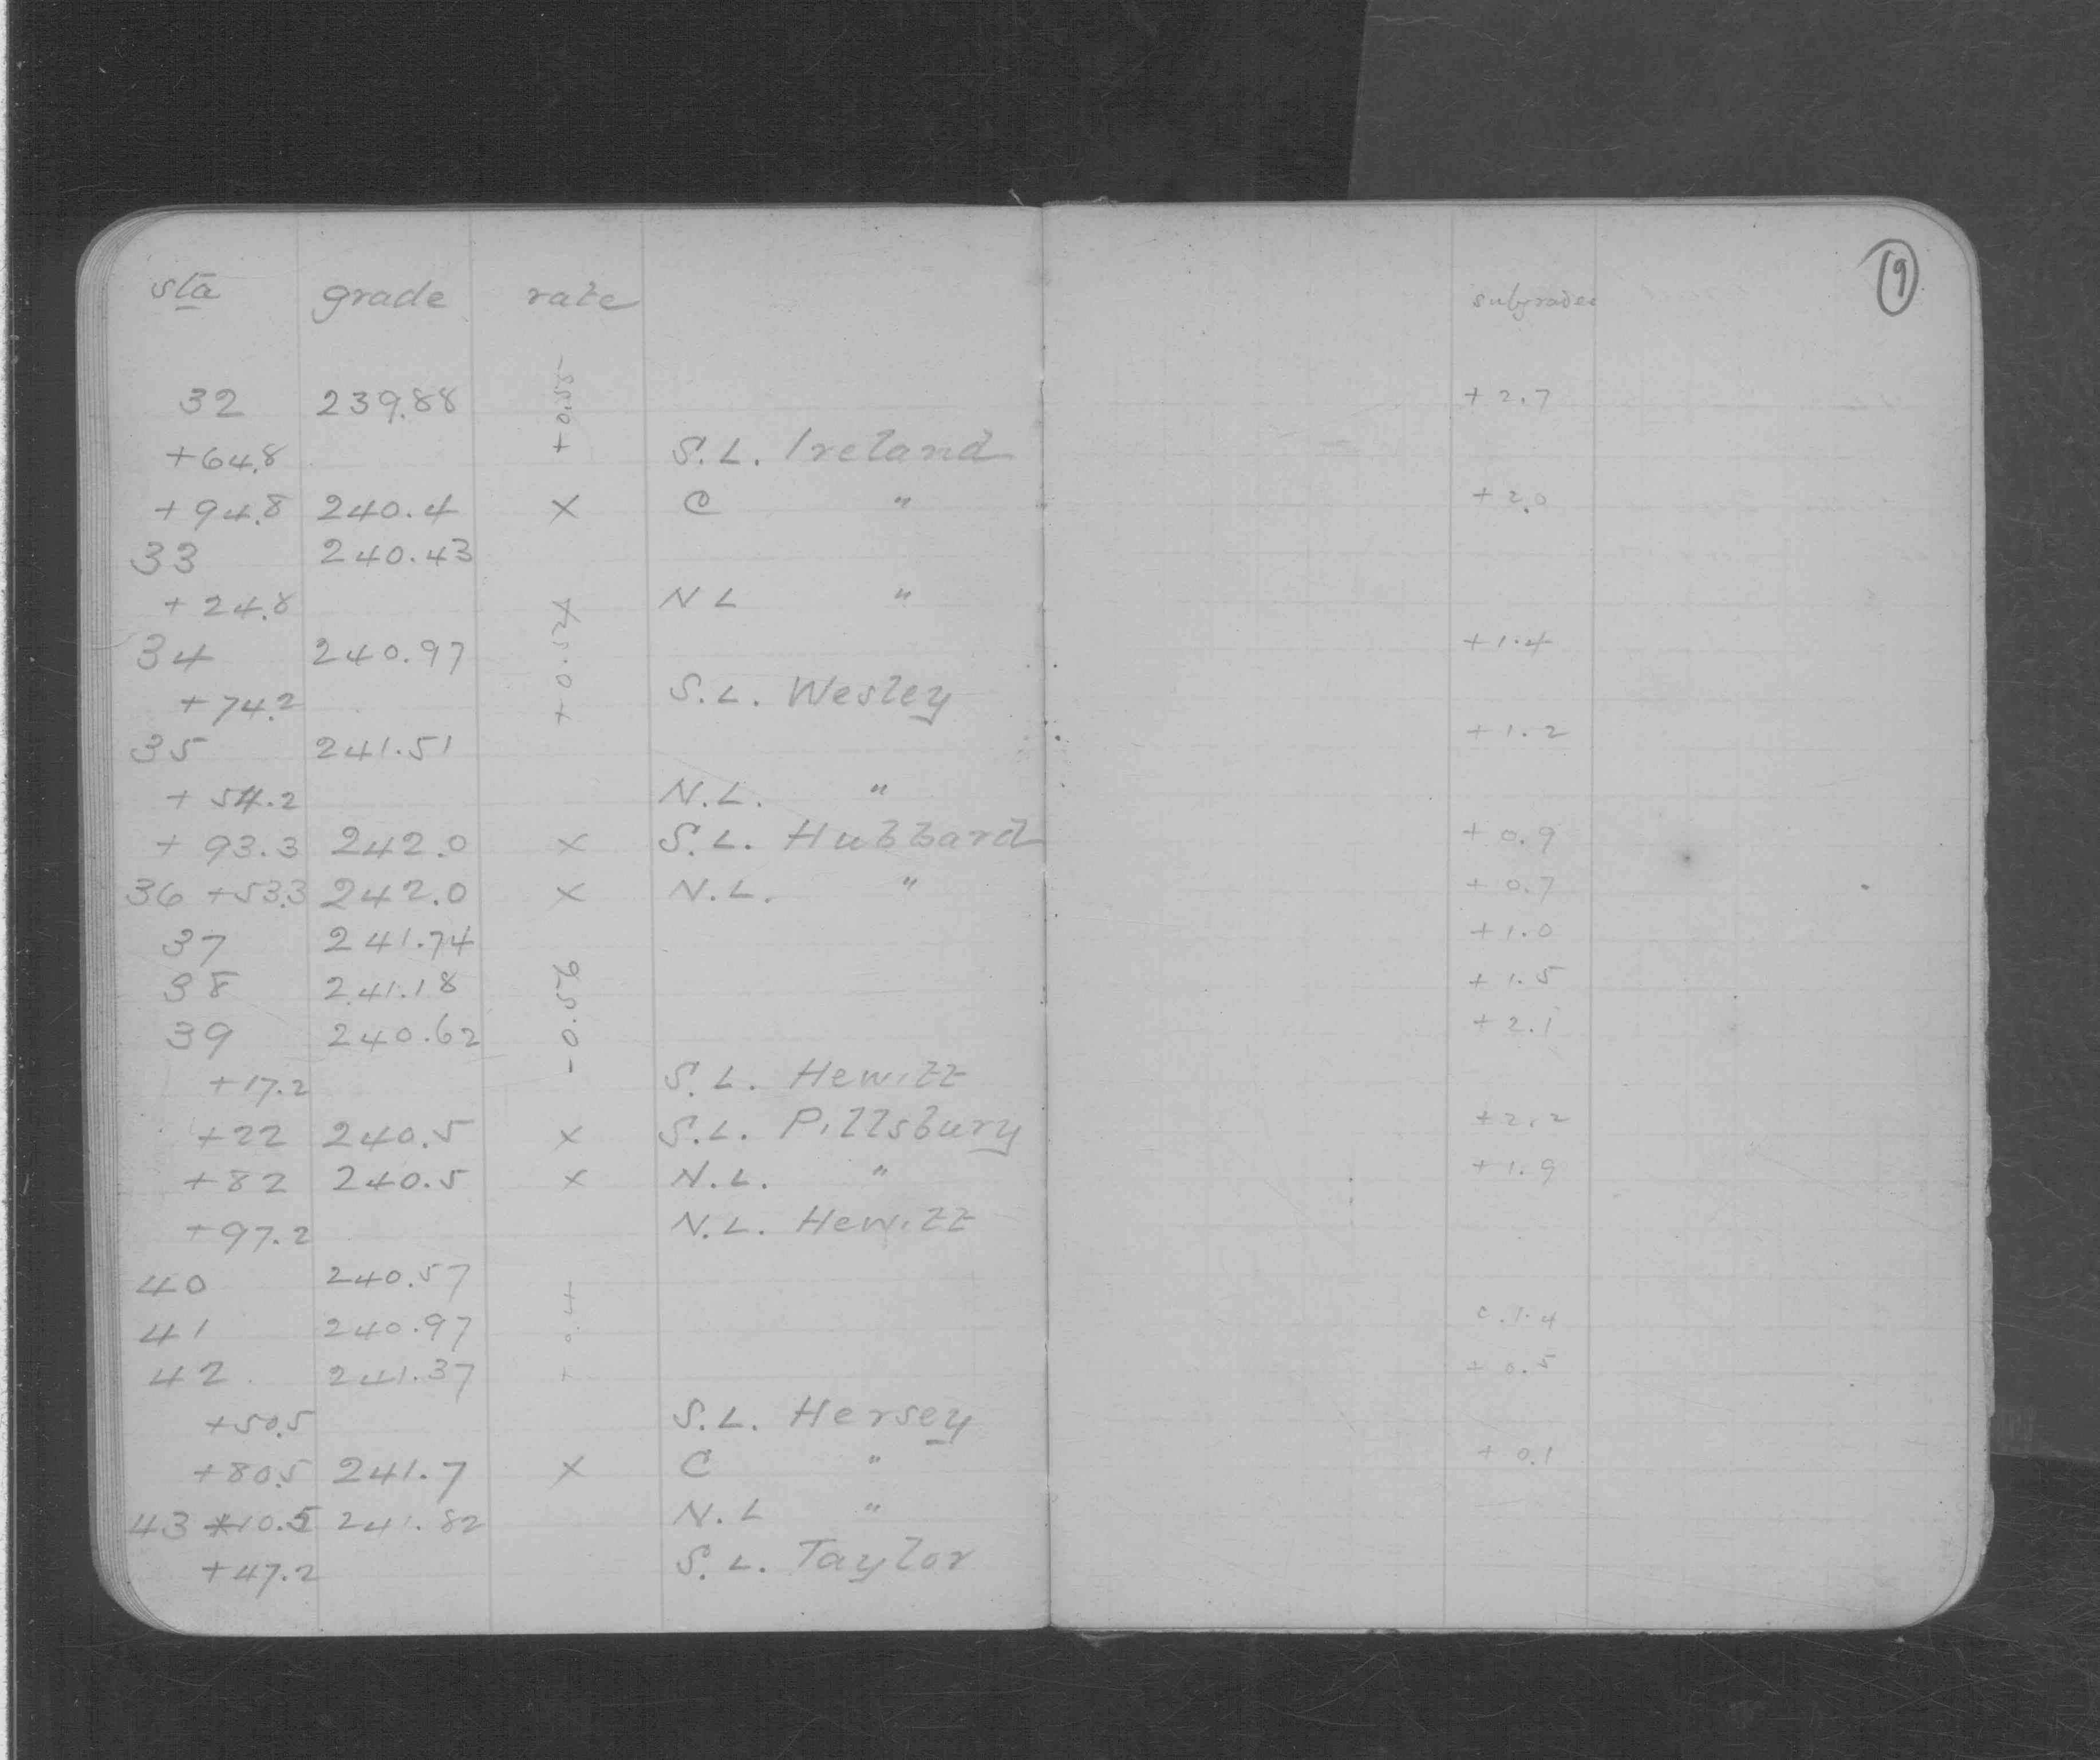 sta grade rate subgrades 9
32 239.88 +0.55 +2.7
+64.8 S.L. Ireland
+94.8 240.4 x C " +2.0
33 240.43
+24.8 N L "
34 240.97 +0.54 +1.4
+74.2 S.L. Wesley
35 241.51 +1.2
+54.2 N.L. "
+93.3 242.0 x S.L. Hubbard +0.9
36 +53.3 242.0 x N.L. " +0.7
37 241.74 +1.0
38 241.18 -0.56 +1.5
39 240.62 +2.1
+17.2 S.L. Hewitt
+22 240.5 x S.L. Pillsbury +2.2
+82 240.5 x N.L. " +1.9
+97.2 N.L. Hewitt
40 240.57
41 240.97 +0.4 c.1.4
42 241.37 +0.5
+50.5 S.L. Hersey
+80.5 241.7 x C " +0.1
43 +10.5 241.82 N.L "
+47.2 S.L. Taylor